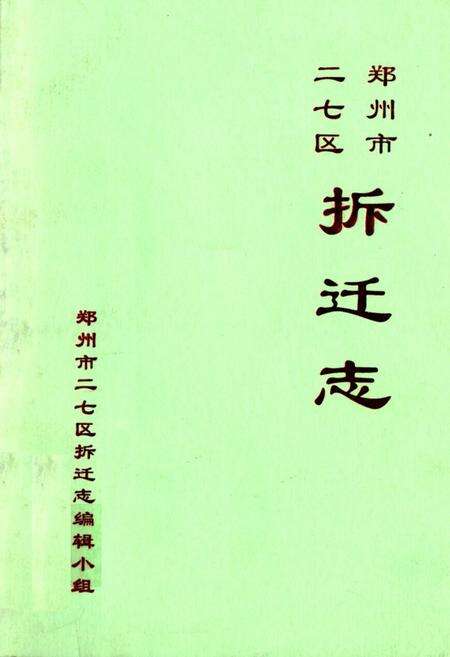 郑州市
二七区
拆迁志
郑州市二七区拆迁志编辑小组